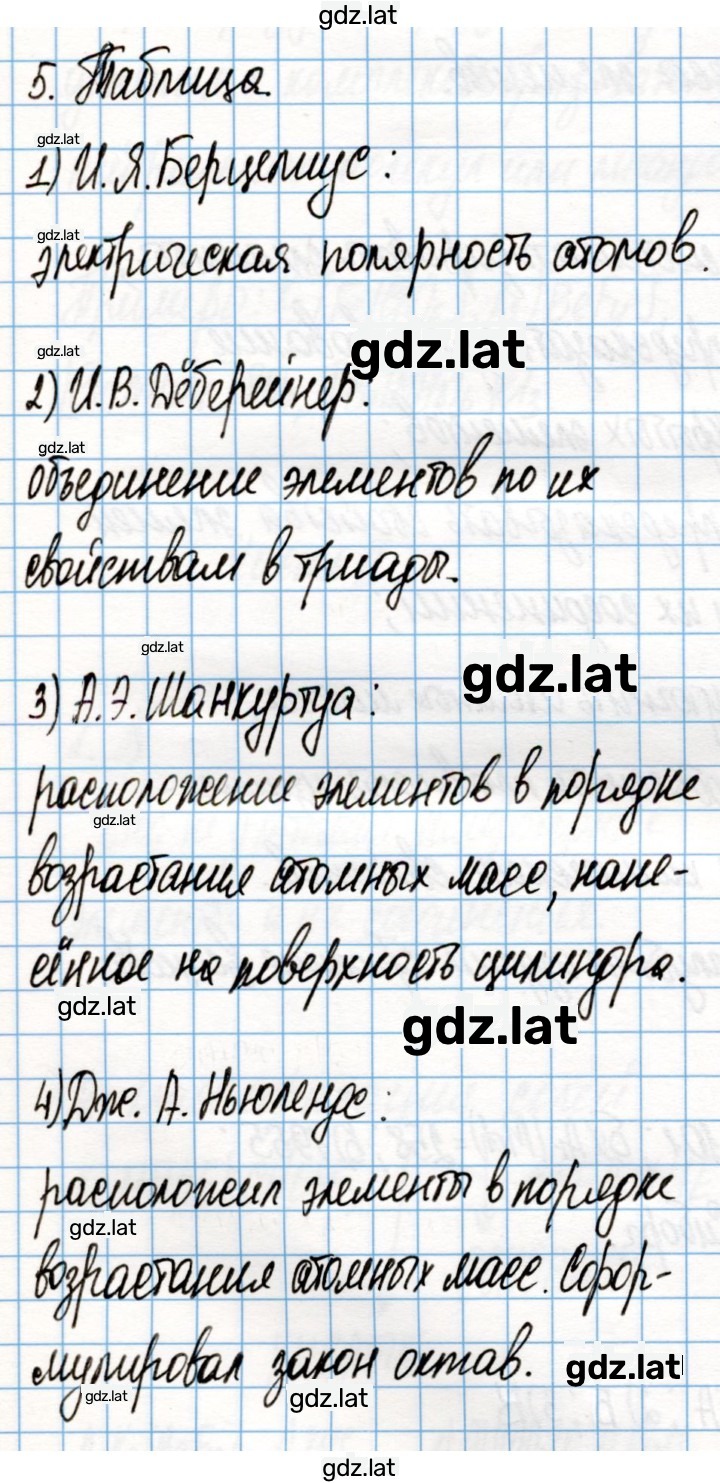 gdz.lat
5. Таблица.
gdz.lat
1) И.Я.Берцелиус:
gdz.lat
электрическая полярность атомов.
gdz.lat
gdz.lat
2) И.В. Дёберейнер:
gdz.lat
объединение элементов по их
свойствам в триады.
gdz.lat
gdz.lat
3) А.Э. Шанкуртуа:
расположение элементов в порядке
gdz.lat
возрастания атомных масс, нане-
сённое на поверхность цилиндра.
gdz.lat
gdz.lat
4) Дж. А. Ньюлендс:
расположил элементы в порядке
gdz.lat
возрастания атомных масс. Сфор-
мулировал закон октав.
gdz.lat
gdz.lat
gdz.lat
gdz.lat